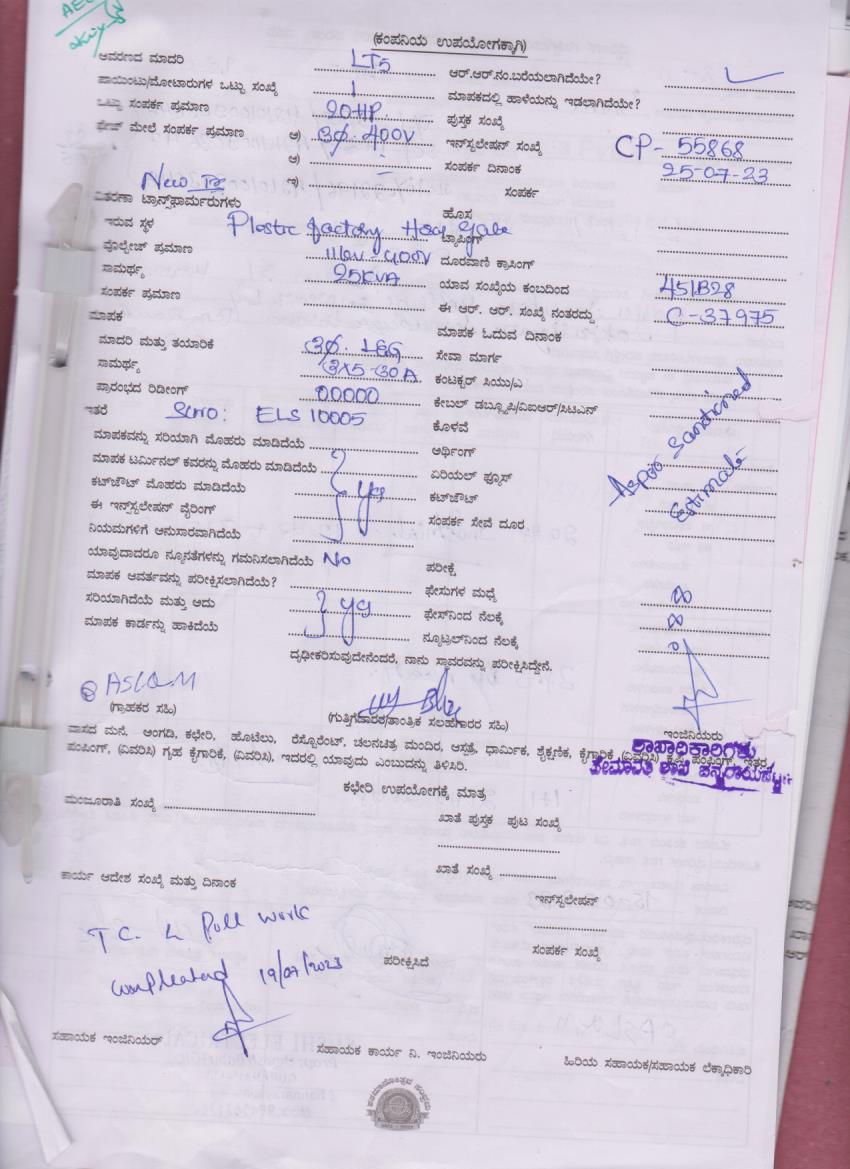 AEE
(ಕಂಪನಿಯ ಉಪಯೋಗಕ್ಕಾಗಿ)
ಆವರಣದ ಮಾದರಿ LT5 ಆರ್.ಆರ್.ನಂ.ಬರೆಯಲಾಗಿದೆಯೇ?
ಪಾಯಿಂಟು/ಮೋಟಾರುಗಳ ಒಟ್ಟು ಸಂಖ್ಯೆ 1 ಮಾಪಕದಲ್ಲಿ ಹಾಳೆಯನ್ನು ಇಡಲಾಗಿದೆಯೇ?
ಒಟ್ಟು ಸಂಪರ್ಕ ಪ್ರಮಾಣ 20HP. ಪುಸ್ತಕ ಸಂಖ್ಯೆ
ಫೇಜ್ ಮೇಲೆ ಸಂಪರ್ಕ ಪ್ರಮಾಣ ಅ) 3Ø. 400V ಇನ್‌ಸ್ಟಲೇಷನ್ ಸಂಖ್ಯೆ CP- 55868
ಆ) ಸಂಪರ್ಕ ದಿನಾಂಕ 25-07-23
New ಇ) ಸಂಪರ್ಕ
ವಿತರಣಾ ಟ್ರಾನ್ಸ್‌ಫಾರ್ಮರುಗಳು ಹೊಸ
ಇರುವ ಸ್ಥಳ Plastic factory ಟ್ಯಾಪಿಂಗ್
ವೋಲ್ಟೇಜ್ ಪ್ರಮಾಣ 11kv - 400V ದೂರವಾಣಿ ಕ್ರಾಸಿಂಗ್
ಸಾಮರ್ಥ್ಯ 25KVA ಯಾವ ಸಂಖ್ಯೆಯ ಕಂಬದಿಂದ 451B28
ಸಂಪರ್ಕ ಪ್ರಮಾಣ ಈ ಆರ್. ಆರ್. ಸಂಖ್ಯೆ ನಂತರದ್ದು C-37975
ಮಾಪಕ ಮಾಪಕ ಓದುವ ದಿನಾಂಕ
ಮಾದರಿ ಮತ್ತು ತಯಾರಿಕೆ 3Ø. L&G ಸೇವಾ ಮಾರ್ಗ
ಸಾಮರ್ಥ್ಯ 3X5-30A ಕಂಟಕ್ಟರ್ ಸಿಯು/ಎ
ಪ್ರಾರಂಭದ ರಿಡಿಂಗ್ 00000 ಕೇಬಲ್ ಡಬ್ಲ್ಯೂಪಿ/ವಿಐಆರ್/ಸಿಟಿಎಸ್
ಇತರೆ Slno: ELS 10005 ಕೊಳವೆ
ಮಾಪಕವನ್ನು ಸರಿಯಾಗಿ ಮೊಹರು ಮಾಡಿದೆಯೆ ಅರ್ಥಿಂಗ್
ಮಾಪಕ ಟರ್ಮಿನಲ್ ಕವರನ್ನು ಮೊಹರು ಮಾಡಿದೆಯೆ ಏರಿಯಲ್ ಫ್ಯೂಸ್
ಕಟ್‌ಜೌಟ್ ಮೊಹರು ಮಾಡಿದೆಯೆ yes ಕಟ್‌ಜೌಟ್
As per Sanctioned
Estimate
ಈ ಇನ್‌ಸ್ಟಲೇಷನ್ ವೈರಿಂಗ್ ಸಂಪರ್ಕ ಸೇವೆ ದೂರ
ನಿಯಮಗಳಿಗೆ ಅನುಸಾರವಾಗಿದೆಯೆ
ಯಾವುದಾದರೂ ನ್ಯೂನತೆಗಳನ್ನು ಗಮನಿಸಲಾಗಿದೆಯೆ No ಪರೀಕ್ಷೆ
ಮಾಪಕ ಆವರ್ತವನ್ನು ಪರೀಕ್ಷಿಸಲಾಗಿದೆಯೆ? ಫೇಸುಗಳ ಮಧ್ಯೆ ∞
ಸರಿಯಾಗಿದೆಯೆ ಮತ್ತು ಅದು yes ಫೇಸ್‌ನಿಂದ ನೆಲಕ್ಕೆ ∞
ಮಾಪಕ ಕಾರ್ಡನ್ನು ಹಾಕಿದೆಯೆ ನ್ಯೂಟ್ರಲ್‌ನಿಂದ ನೆಲಕ್ಕೆ
ದೃಢೀಕರಿಸುವುದೇನೆಂದರೆ, ನಾನು ಸ್ಥಾವರವನ್ನು ಪರೀಕ್ಷಿಸಿದ್ದೇನೆ.
(ಗ್ರಾಹಕರ ಸಹಿ) (ಗುತ್ತಿಗೆದಾರರ/ತಾಂತ್ರಿಕ ಸಲಹೆಗಾರರ ಸಹಿ) ಇಂಜಿನಿಯರು
ಶಾಖಾಧಿಕಾರಿಗಳು
ವಾಸದ ಮನೆ, ಅಂಗಡಿ, ಕಛೇರಿ, ಹೊಟೆಲು, ರೆಸ್ಟೊರೆಂಟ್, ಚಲನಚಿತ್ರ ಮಂದಿರ, ಆಸ್ಪತ್ರೆ, ಧಾರ್ಮಿಕ, ಶೈಕ್ಷಣಿಕ, ಕೈಗಾರಿಕೆ (ವಿವರಿಸಿ) ಕೃಷಿ ಪಂಪಿಂಗ್, ಇತರ
ಪಂಪಿಂಗ್, (ವಿವರಿಸಿ) ಗೃಹ ಕೈಗಾರಿಕೆ, (ವಿವರಿಸಿ), ಇದರಲ್ಲಿ ಯಾವುದು ಎಂಬುದನ್ನು ತಿಳಿಸಿರಿ.
ಹೇಮಾವತಿ ಶಾಖೆ ಚನ್ನರಾಯಪಟ್ಟಣ
ಕಛೇರಿ ಉಪಯೋಗಕ್ಕೆ ಮಾತ್ರ
ಮಂಜೂರಾತಿ ಸಂಖ್ಯೆ ಖಾತೆ ಪುಸ್ತಕ ಪುಟ ಸಂಖ್ಯೆ
ಖಾತೆ ಸಂಖ್ಯೆ
ಕಾರ್ಯ ಆದೇಶ ಸಂಖ್ಯೆ ಮತ್ತು ದಿನಾಂಕ
ಇನ್‌ಸ್ಟಲೇಷನ್
TC. & Poll work
ಸಂಪರ್ಕ ಸಂಖ್ಯೆ
ಪರೀಕ್ಷಿಸಿದೆ
compleated 19/07/2023
ಸಹಾಯಕ ಇಂಜಿನಿಯರ್ ಸಹಾಯಕ ಕಾರ್ಯ ನಿ. ಇಂಜಿನಿಯರು ಹಿರಿಯ ಸಹಾಯಕ/ಸಹಾಯಕ ಲೆಕ್ಕಾಧಿಕಾರಿ